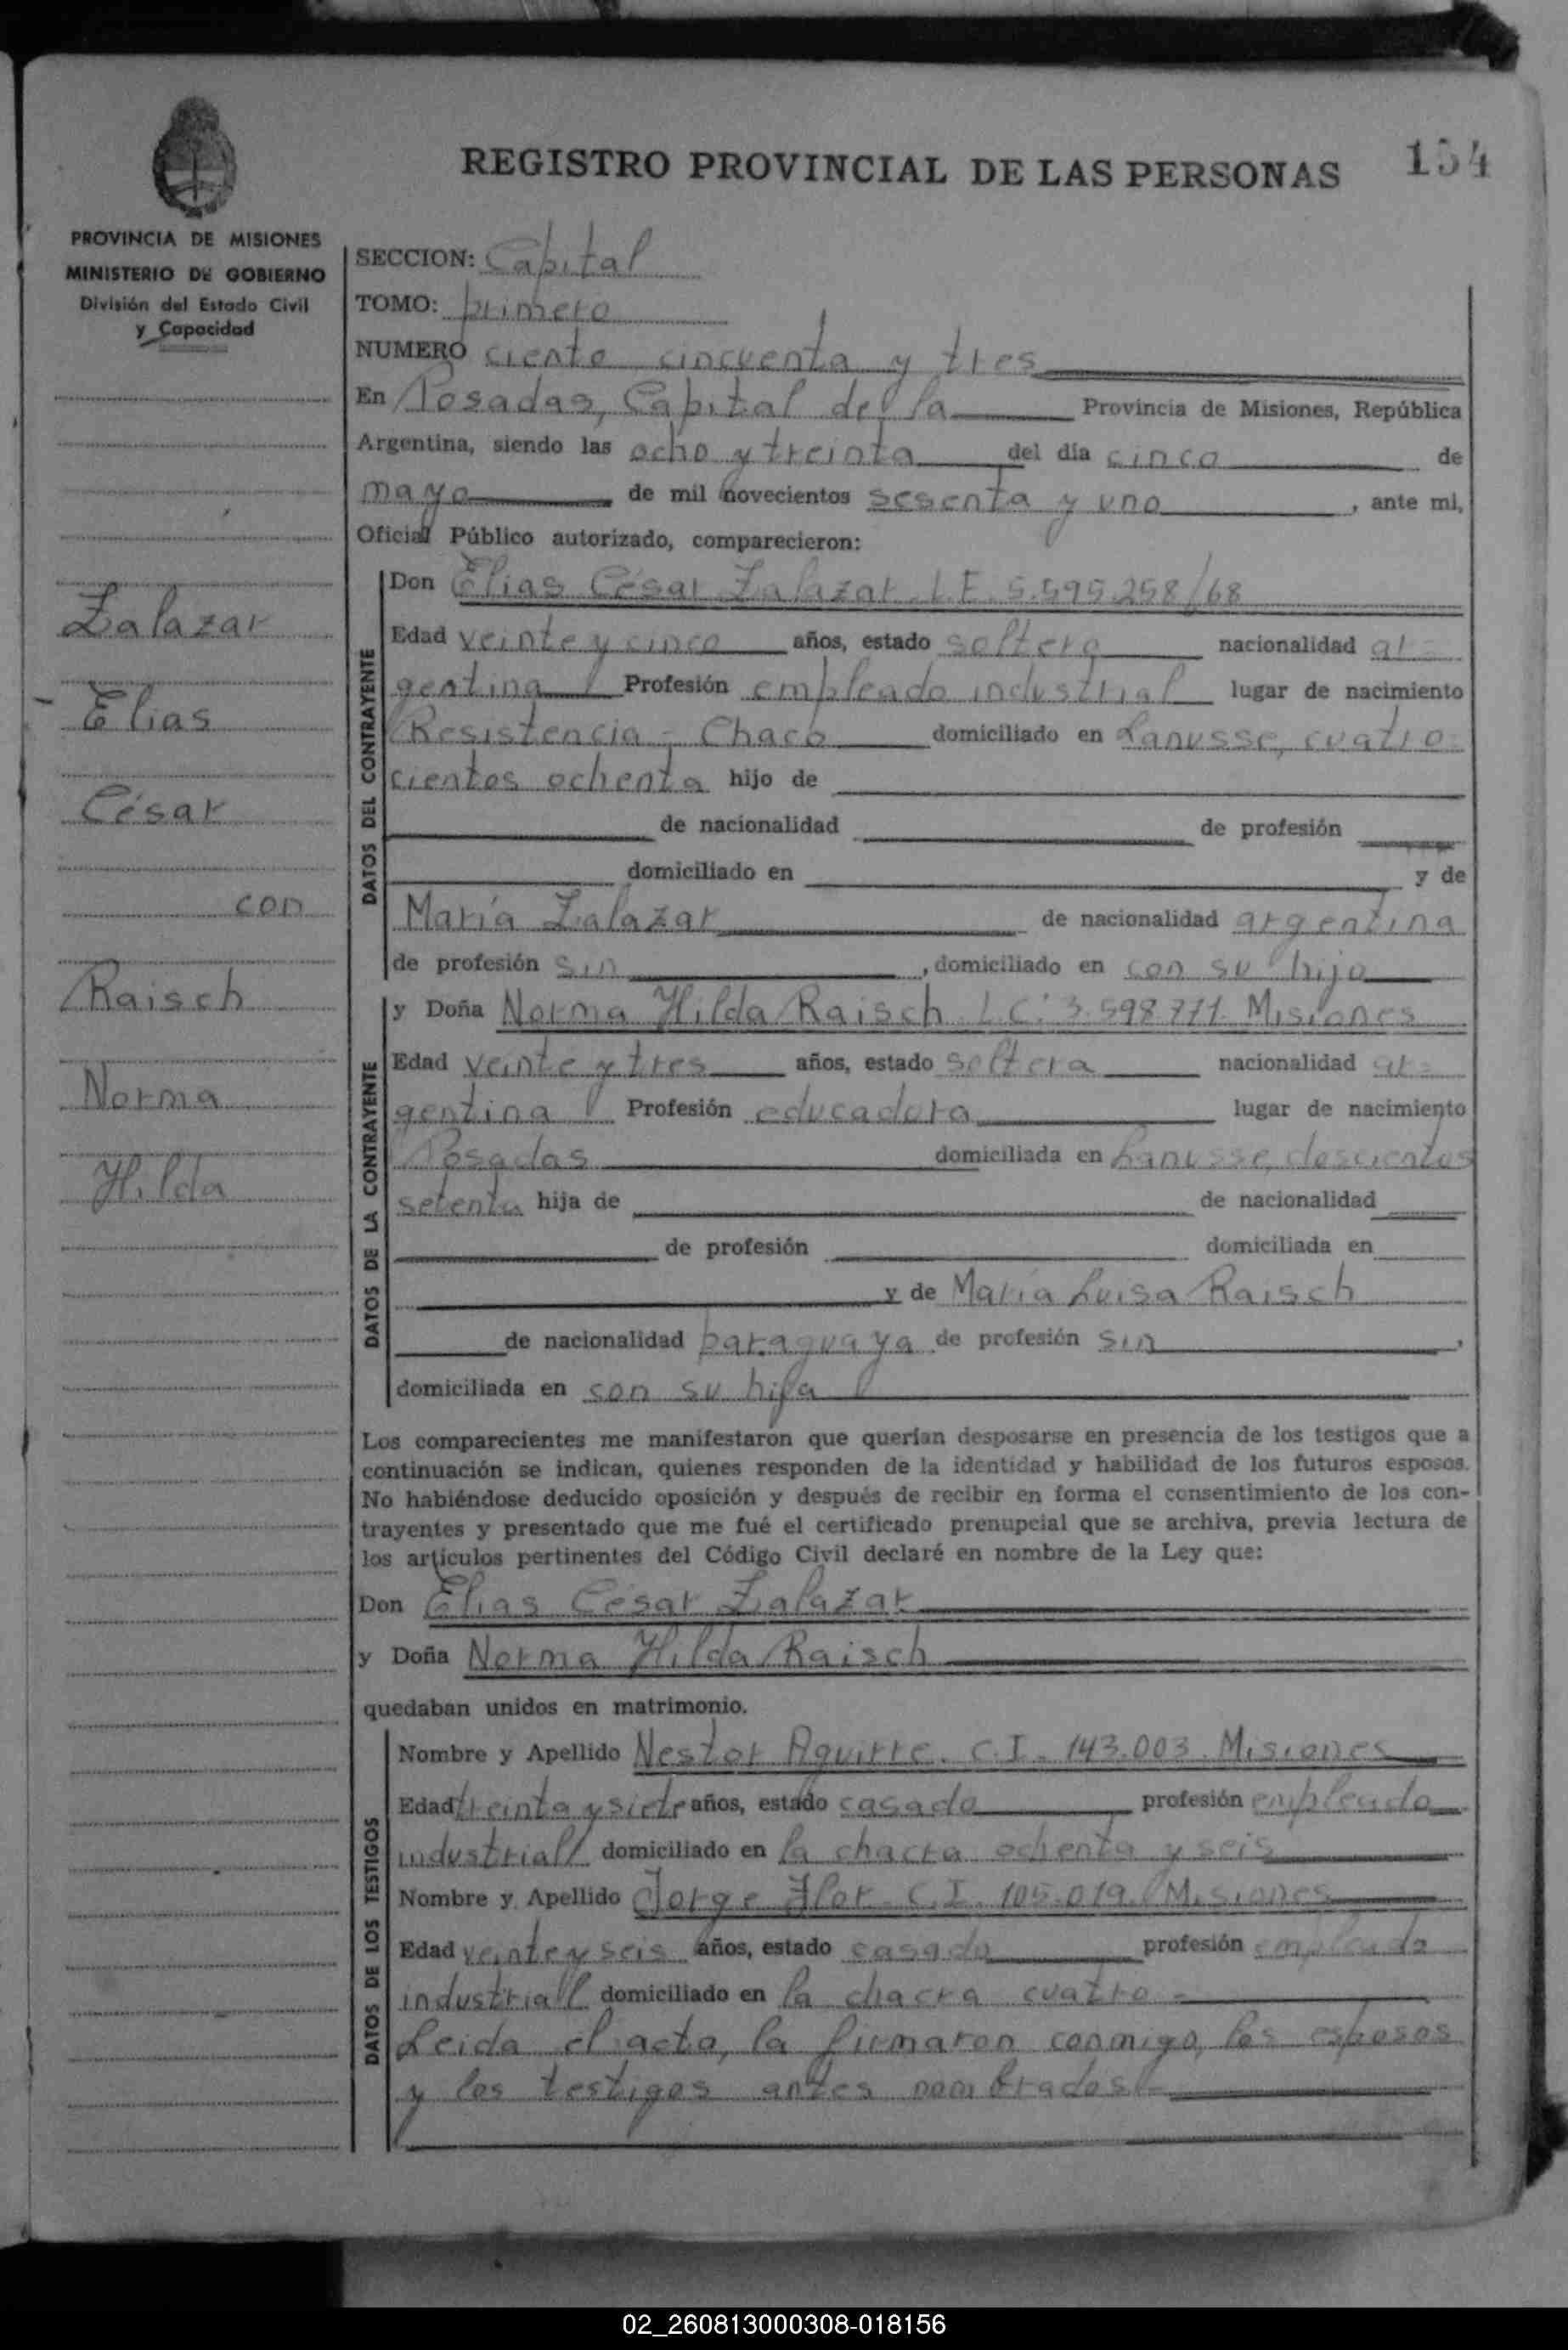 REGISTRO PROVINCIAL DE LAS PERSONAS 154
PROVINCIA DE MISIONES
MINISTERIO DE GOBIERNO
División del Estado Civil
y Capacidad
SECCION: Capital
TOMO: primero
NUMERO ciento cincuenta y tres
En Posadas, Capital de la Provincia de Misiones, República
Argentina, siendo las ocho y treinta del día cinco de
mayo de mil novecientos sesenta y uno, ante mi,
Oficial Público autorizado, comparecieron:
Zalazar
Elias
César
con
Raisch
Norma
Hilda
DATOS DEL CONTRAYENTE
Don Elias César Zalazar. L.E. 5.595.258/68
Edad veinte y cinco años, estado soltero nacionalidad ar=
gentina Profesión empleado industrial lugar de nacimiento
Resistencia - Chaco domiciliado en Lanusse, cuatro=
cientos ochenta hijo de
de nacionalidad de profesión
domiciliado en y de
María Zalazar de nacionalidad argentina
de profesión sin, domiciliado en con su hijo
DATOS DE LA CONTRAYENTE
y Doña Norma Hilda Raisch L.C. 3.598.771. Misiones
Edad veinte y tres años, estado soltera nacionalidad ar=
gentina Profesión educadora lugar de nacimiento
Posadas domiciliada en Lanusse, doscientos
setenta hija de de nacionalidad
de profesión domiciliada en
y de María Luisa Raisch
de nacionalidad paraguaya de profesión sin,
domiciliada en con su hija
Los comparecientes me manifestaron que querían desposarse en presencia de los testigos que a
continuación se indican, quienes responden de la identidad y habilidad de los futuros esposos.
No habiéndose deducido oposición y después de recibir en forma el consentimiento de los con-
trayentes y presentado que me fué el certificado prenupcial que se archiva, previa lectura de
los artículos pertinentes del Código Civil declaré en nombre de la Ley que:
Don Elias César Zalazar
y Doña Norma Hilda Raisch
quedaban unidos en matrimonio.
DATOS DE LOS TESTIGOS
Nombre y Apellido Nestor Aguirre. C.I. 143.003. Misiones
Edad treinta y siete años, estado casado profesión empleado
industrial domiciliado en la chacra ochenta y seis
Nombre y Apellido Jorge Flor. C.I. 105.019. Misiones
Edad veinte y seis años, estado casado profesión empleado
industrial domiciliado en la chacra cuatro -
Leida el acta, la firmaron conmigo, los esposos
y los testigos antes nombrados=
02_260813000308-018156